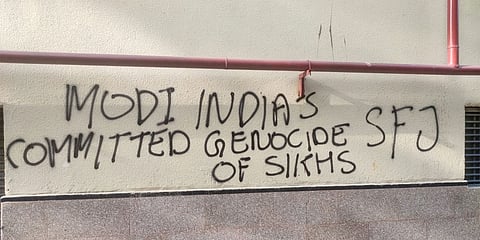 MODI INDIA'S
COMMITTED GENOCIDE SFJ
OF SIKHS